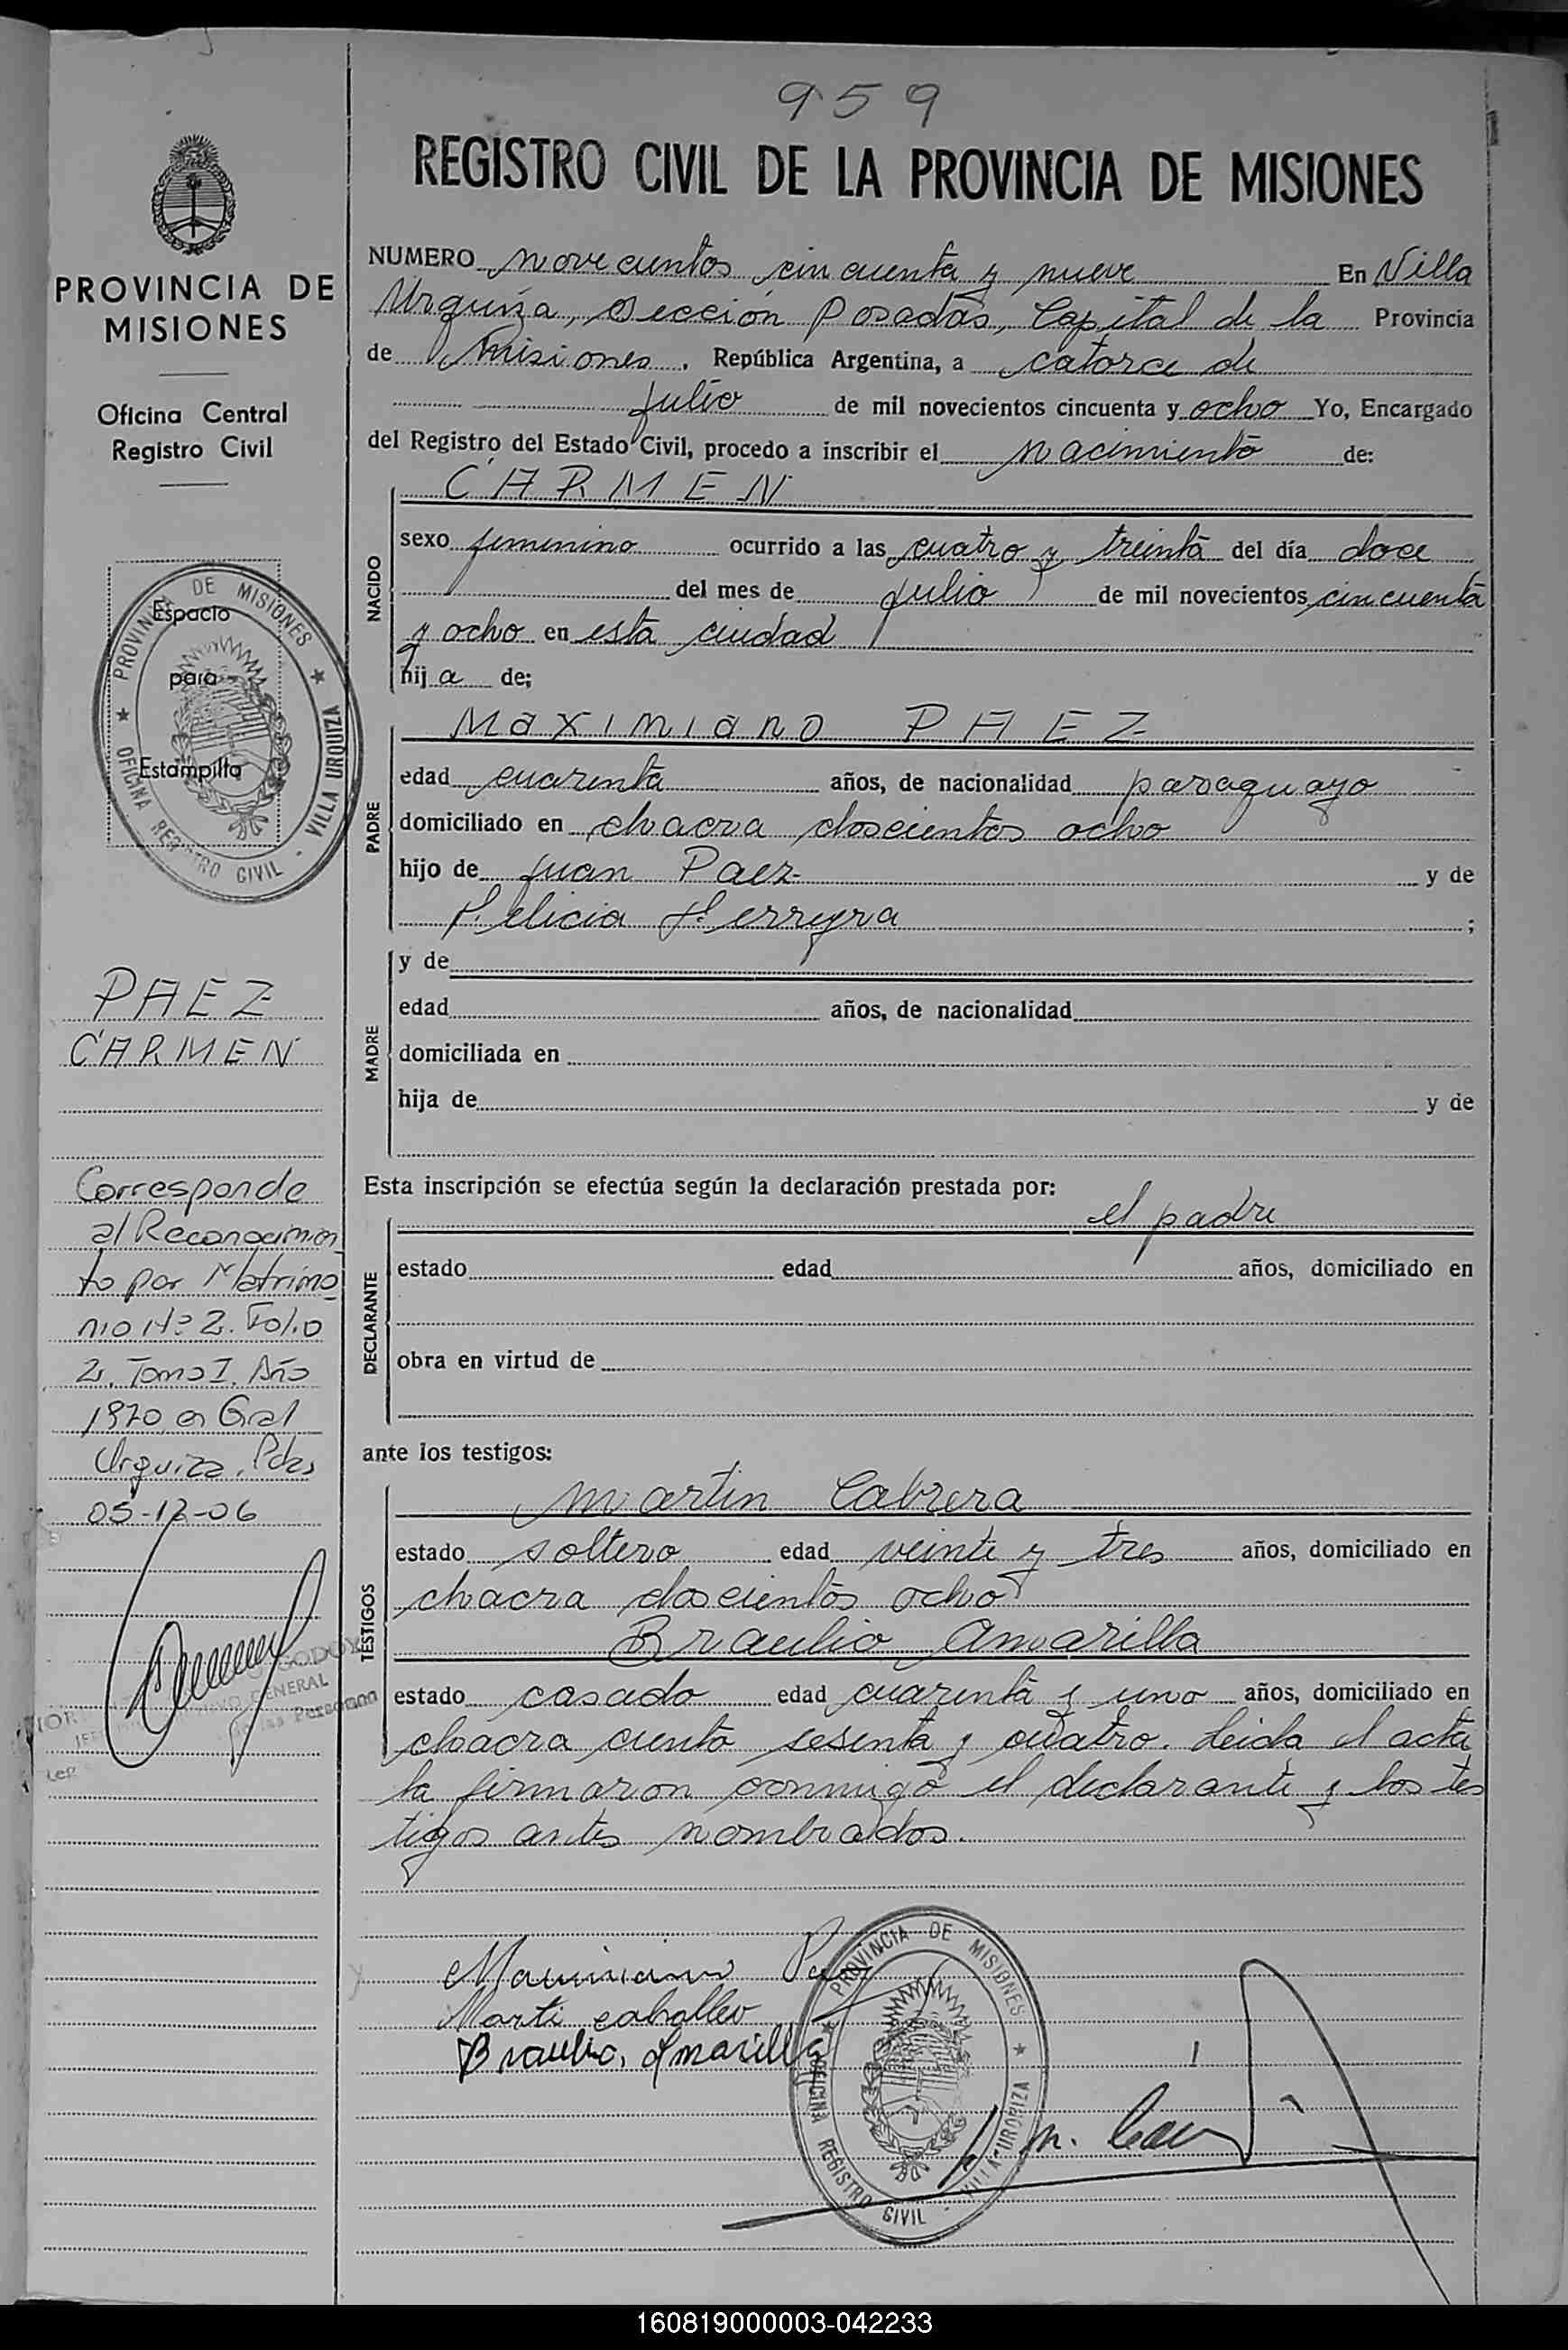 959
REGISTRO CIVIL DE LA PROVINCIA DE MISIONES
PROVINCIA DE
MISIONES
Oficina Central
Registro Civil
NUMERO novecientos cincuenta y nueve En Villa
Urquiza, sección Posadas, Capital de la Provincia
de Misiones. República Argentina, a catorce de
julio de mil novecientos cincuenta y ocho Yo, Encargado
del Registro del Estado Civil, procedo a inscribir el nacimiento de:
NACIDO
CARMEN
sexo femenino ocurrido a las cuatro y treinta del día doce
del mes de julio de mil novecientos cincuenta
y ocho en esta ciudad
hija de:
Espacio
para
Estampilla
PROVINCIA DE MISIONES
OFICINA REGISTRO CIVIL - VILLA URQUIZA
PADRE
Maximiano PAEZ
edad cuarenta años, de nacionalidad paraguayo
domiciliado en chacra doscientos ocho
hijo de Juan Paez y de
Felicia Ferreyra ;
MADRE
y de
edad años, de nacionalidad
domiciliada en
hija de y de
PAEZ
CARMEN
Corresponde
al Reconocimien
to por Matrimo
nio Nº 2. Folio
2. Tomo I. Año
1970 en Gral
Urquiza. Pdas
05-12-06
GODOY
GENERAL
las Personas
Esta inscripción se efectúa según la declaración prestada por:
DECLARANTE
el padre
estado edad años, domiciliado en
obra en virtud de
ante los testigos:
TESTIGOS
Martin Cabrera
estado soltero edad veinte y tres años, domiciliado en
chacra doscientos ocho
Braulio Amarilla
estado casado edad cuarenta y uno años, domiciliado en
chacra ciento sesenta y cuatro. Leida el acta
la firmaron conmigo el declarante y los tes
tigos antes nombrados.
Maximiano Paez
Marti caballero
Braulio, Amarilla
PROVINCIA DE MISIONES
OFICINA REGISTRO CIVIL - VILLA URQUIZA
160819000003-042233